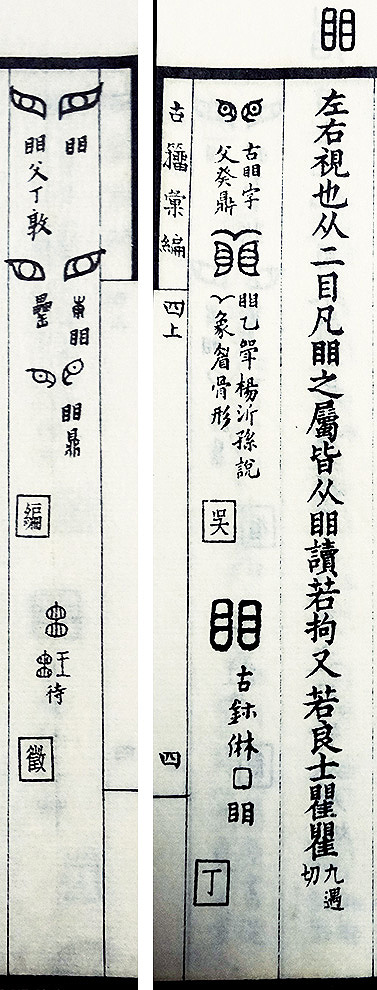 䀠
左右視也从二目凡䀠之屬皆从䀠讀若拘又若良士瞿瞿九遇切
古䀠字父癸鼎
䀠乙觶楊沂孫說象眉骨形
吳
䀠
古鉥
䀠
丁
古籀彙編
四上
四
䀠
䀠父丁敦
䀠鼎
編
待
徵